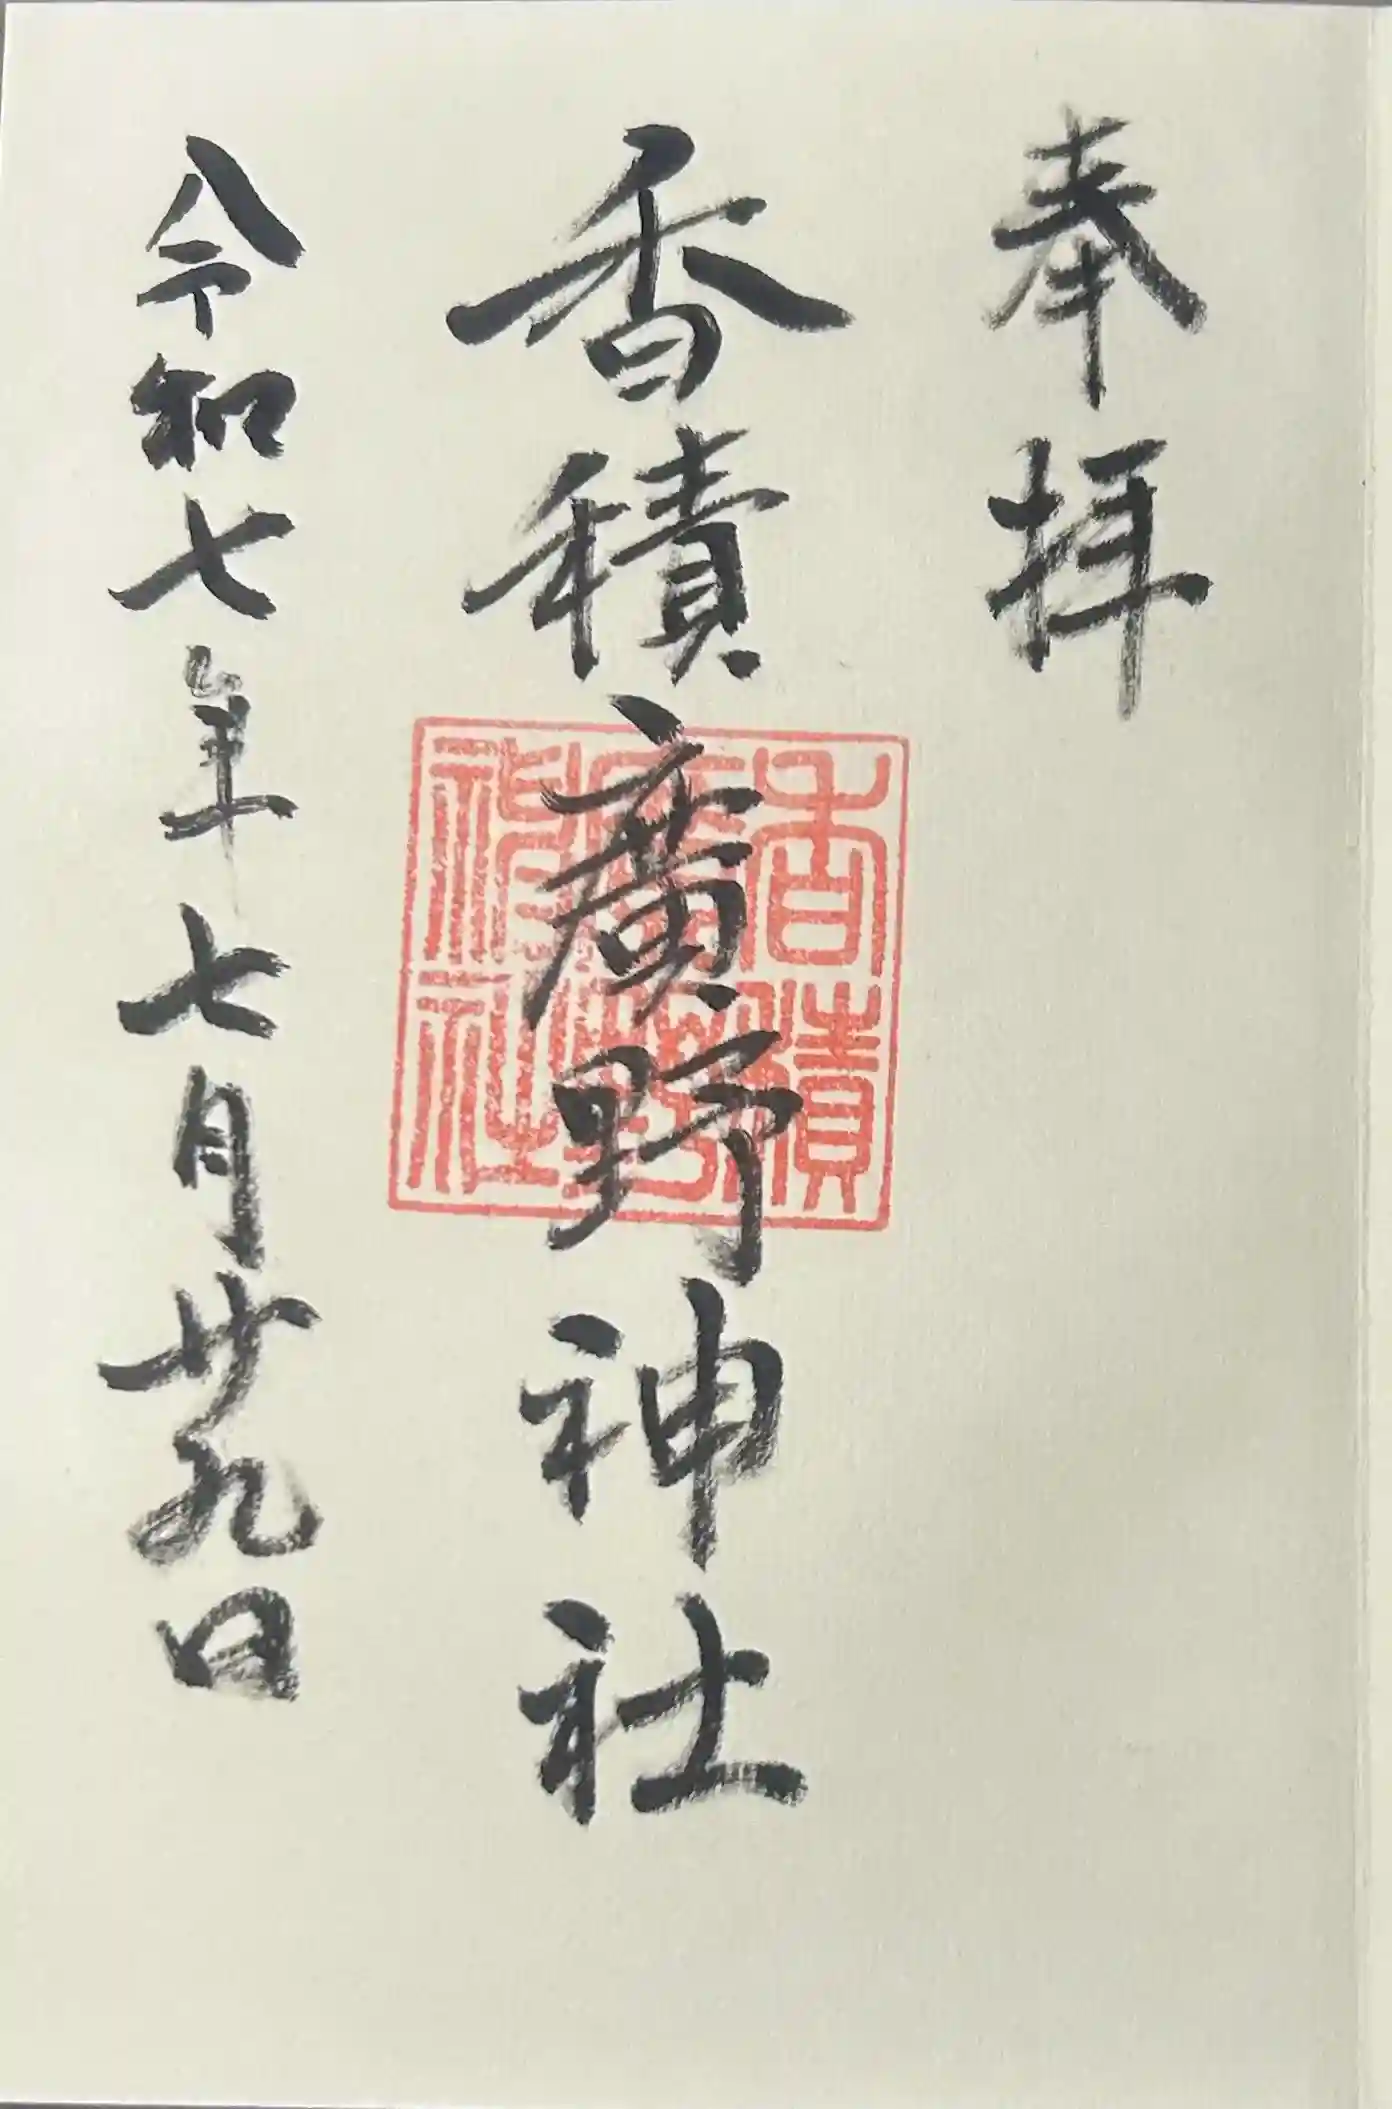 奉拝
香積廣野神社
香積廣野神社
令和七年七月廿九日